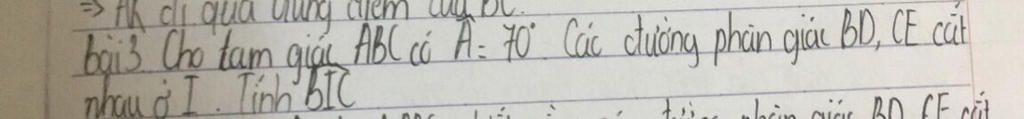 => AK đi qua trung điểm của BC.
bài 3 Cho tam giác ABC có Â = 70° Các đường phân giác BD, CE cắt
nhau ở I. Tính BIC
phân giác BD CE cắt